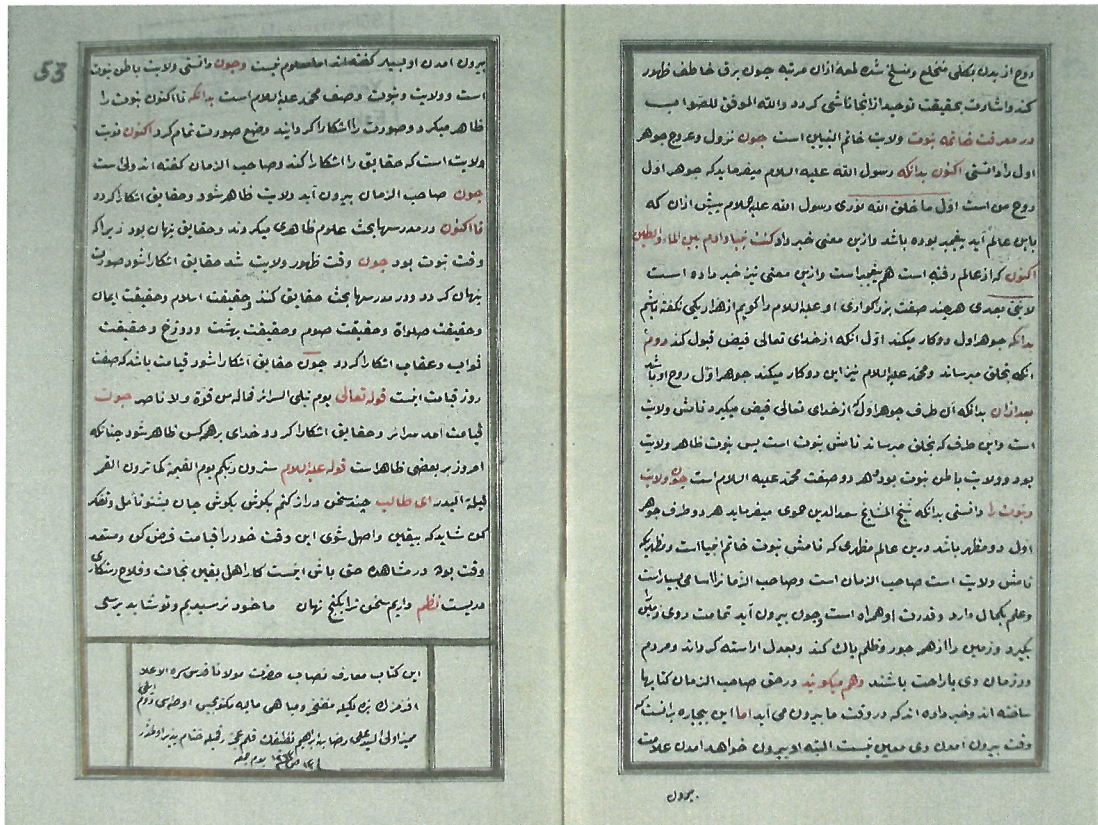 روح از بدن بکلی منخلع و منسلخ شده لمعه ازان مرتبه چون برق خاطف ظهور
کند و اشارت بحقیقت توحید ازانجا ناشی کردد والله الموفق للصواب
در معرفت خاتمه نبوت ولایت خاتم النبیین است چون نزول و عروج جوهر
اول را دانستی اکنون بدانکه رسول الله علیه السلام میفرماید که جوهر اول
روح من است اول ما خلق الله نوری رسول الله علیه السلام پیش ازان که
باین عالم آید پیغمبر بوده باشد و ازین معنی خبر داد کنت نبیا و ادم بین الماء والطین
اکنون که از عالم رفته است هم پیغمبر است و ازین معنی نیز خبر داده است
لا نبی بعدی هر چند صفت بزرکواری او علیه السلام را کویم از هزار یکی نکفته باشم
بدانکه جوهر اول دو کار میکند اول انکه از خدای تعالی فیض قبول کند دوم
انکه بخلق میرساند و محمد علیه السلام نیز این دو کار میکند جوهر اول روح او باشد
بعد ازان بدانکه آن طرف جوهر اول که از خدای تعالی فیض میکیرد نامش ولایت
است و این طرف که بخلق میرساند نامش نبوت است پس نبوت ظاهر ولایت
بود و ولایت باطن نبوت بود هر دو صفت محمد علیه السلام است چون ولایت
و نبوت را دانستی بدانکه شیخ المشایخ سعد الدین حموی میفرماید هر دو طرف جوهر
اول دو مظهر باشد درین عالم مظهری که نامش نبوت خاتم انبیا است و مظهریکه
نامش ولایت است صاحب الزمان است و صاحب الزمانرا اسامی بسیار است
و علم بکمال دارد و قدرت او همراه است و چون بیرون آید تمامت روی زمین را
بکیرد و زمین را از هر جور و ظلم پاک کند و بعدل اراسته کرداند و مردم
در زمان وی با راحت باشند و هم میکویند در حق صاحب الزمان کتابها
ساخته اند و خبر داده اند که در وقت ما بیرون می آید اما این بیچاره برانست که
وقت بیرون امدن وی معین نیست البته او بیرون خواهد امدن علامت
بیرون
53
بیرون امدن او بسیار کفته اند اما معلوم نیست و چون دانستی ولایت باطن نبوت
است و ولایت و نبوت وصف محمد علیه السلام است بدانکه تا اکنون نبوت را
ظاهر میکرد و صورت را اشکارا کردانید وضع صورت تمام کرد اکنون نوبت
ولایت است که حقایق را اشکارا کند و صاحب الزمان کفته اند ولی است
چون صاحب الزمان بیرون آید ولایت ظاهر شود و حقایق اشکارا کردد
تا اکنون در مدرسها بحث علوم ظاهری میکردند و حقایق پنهان بود زیرا که
وقت نبوت بود چون وقت ظهور ولایت شد حقایق اشکارا شود صورت
پنهان کردد و در مدرسها بحث حقایق کنند و حقیقت اسلام و حقیقت ایمان
و حقیقت صلواة و حقیقت صوم و حقیقت بهشت و دوزخ و حقیقت
ثواب و عقاب اشکارا کردد چون حقایق اشکارا شود قیامت باشد که صفت
روز قیامت اینست قوله تعالی یوم تبلی السرائر فما له من قوة ولا ناصر چون
قیامت آمد سرائر و حقایق اشکارا کردد خدای بر همه کس ظاهر شود چنانکه
امروز بر بعضی ظاهر است قوله علیه السلام سترون ربکم یوم القیمة کما ترون القمر
لیلة البدر ای طالب چند سخن دراز کنم بکوش بکوش جان بشنو تامل و تفکر
کن شاید که بیقین واصل شوی این وقت خود را قیامت فرض کن و مستعد
وقت بوده در مشاهده حق باش اینست کار اهل یقین نجات و فلاح و رستکاری
دریست نظم دادیم سخن ترا بکنج نهان ما خود نرسیدیم و تو شاید برسی
این کتاب معارف نصاب حضرت مولانا قدس سره الاعلا
یوم جمعه